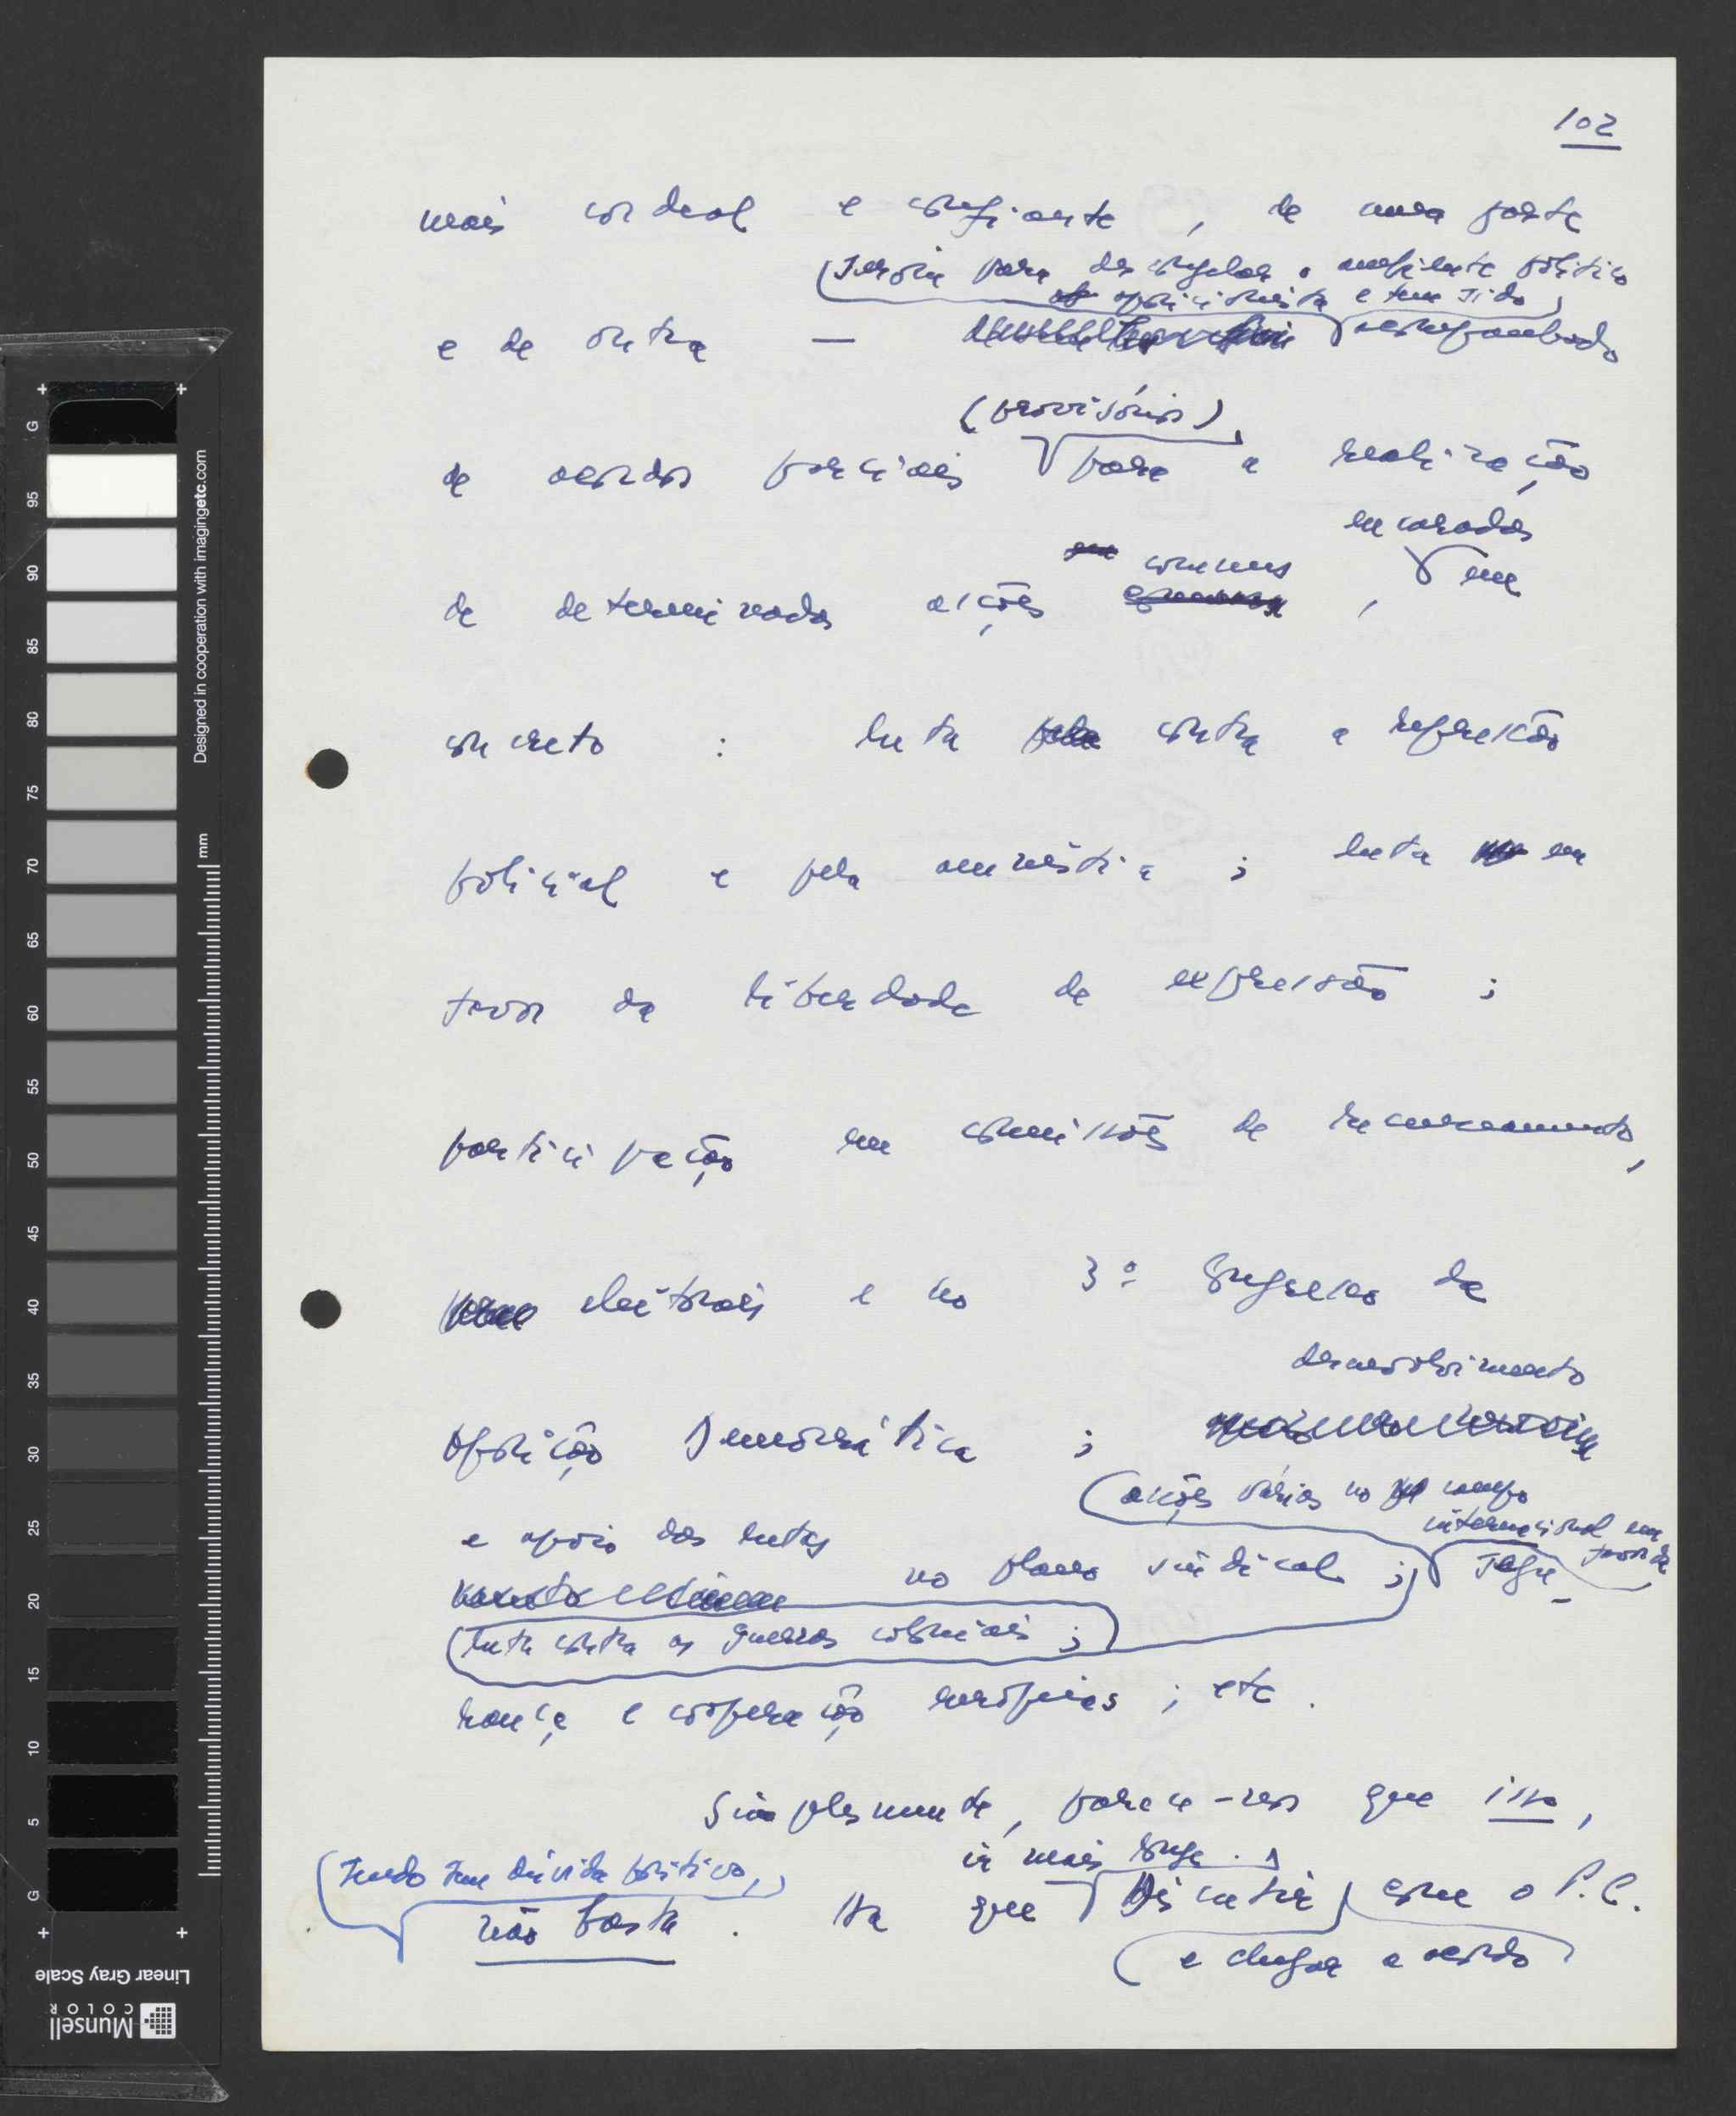 102
mais cordeal e confiante, de uma parte
(serviu para descongelar o ambiente político
oposicionista e tem sido)
e de outra — acompanhado
(provisórios)
de acordos parciais para a realização
encarados
comuns
de determinadas acções , em
concreto : luta contra a repressão
policial e pela amnistia ; luta em
favor da liberdade de expressão ;
participação em comissões de recenseamento,
eleitorais e no 3º Congresso da
desenvolvimento
Oposição Democrática ;
(acções várias no campo
internacional em
favor da
e apoio das lutas
no plano sindical ; Segu-
(luta contra as guerras coloniais ;)
rança e cooperação europeias ; etc.
Simplesmente, parece-nos que isso,
(sendo sem dúvida positivo,)
ir mais longe.
não basta . Há que discutir com o P.C.
(e chegar a acordo)
Designed in cooperation with imagingetc.com
mm
G 95 90 85 80 75 70 65 60 55 50 45 40 35 30 25 20 15 10 5 G
Linear Gray Scale
Munsell
COLOR